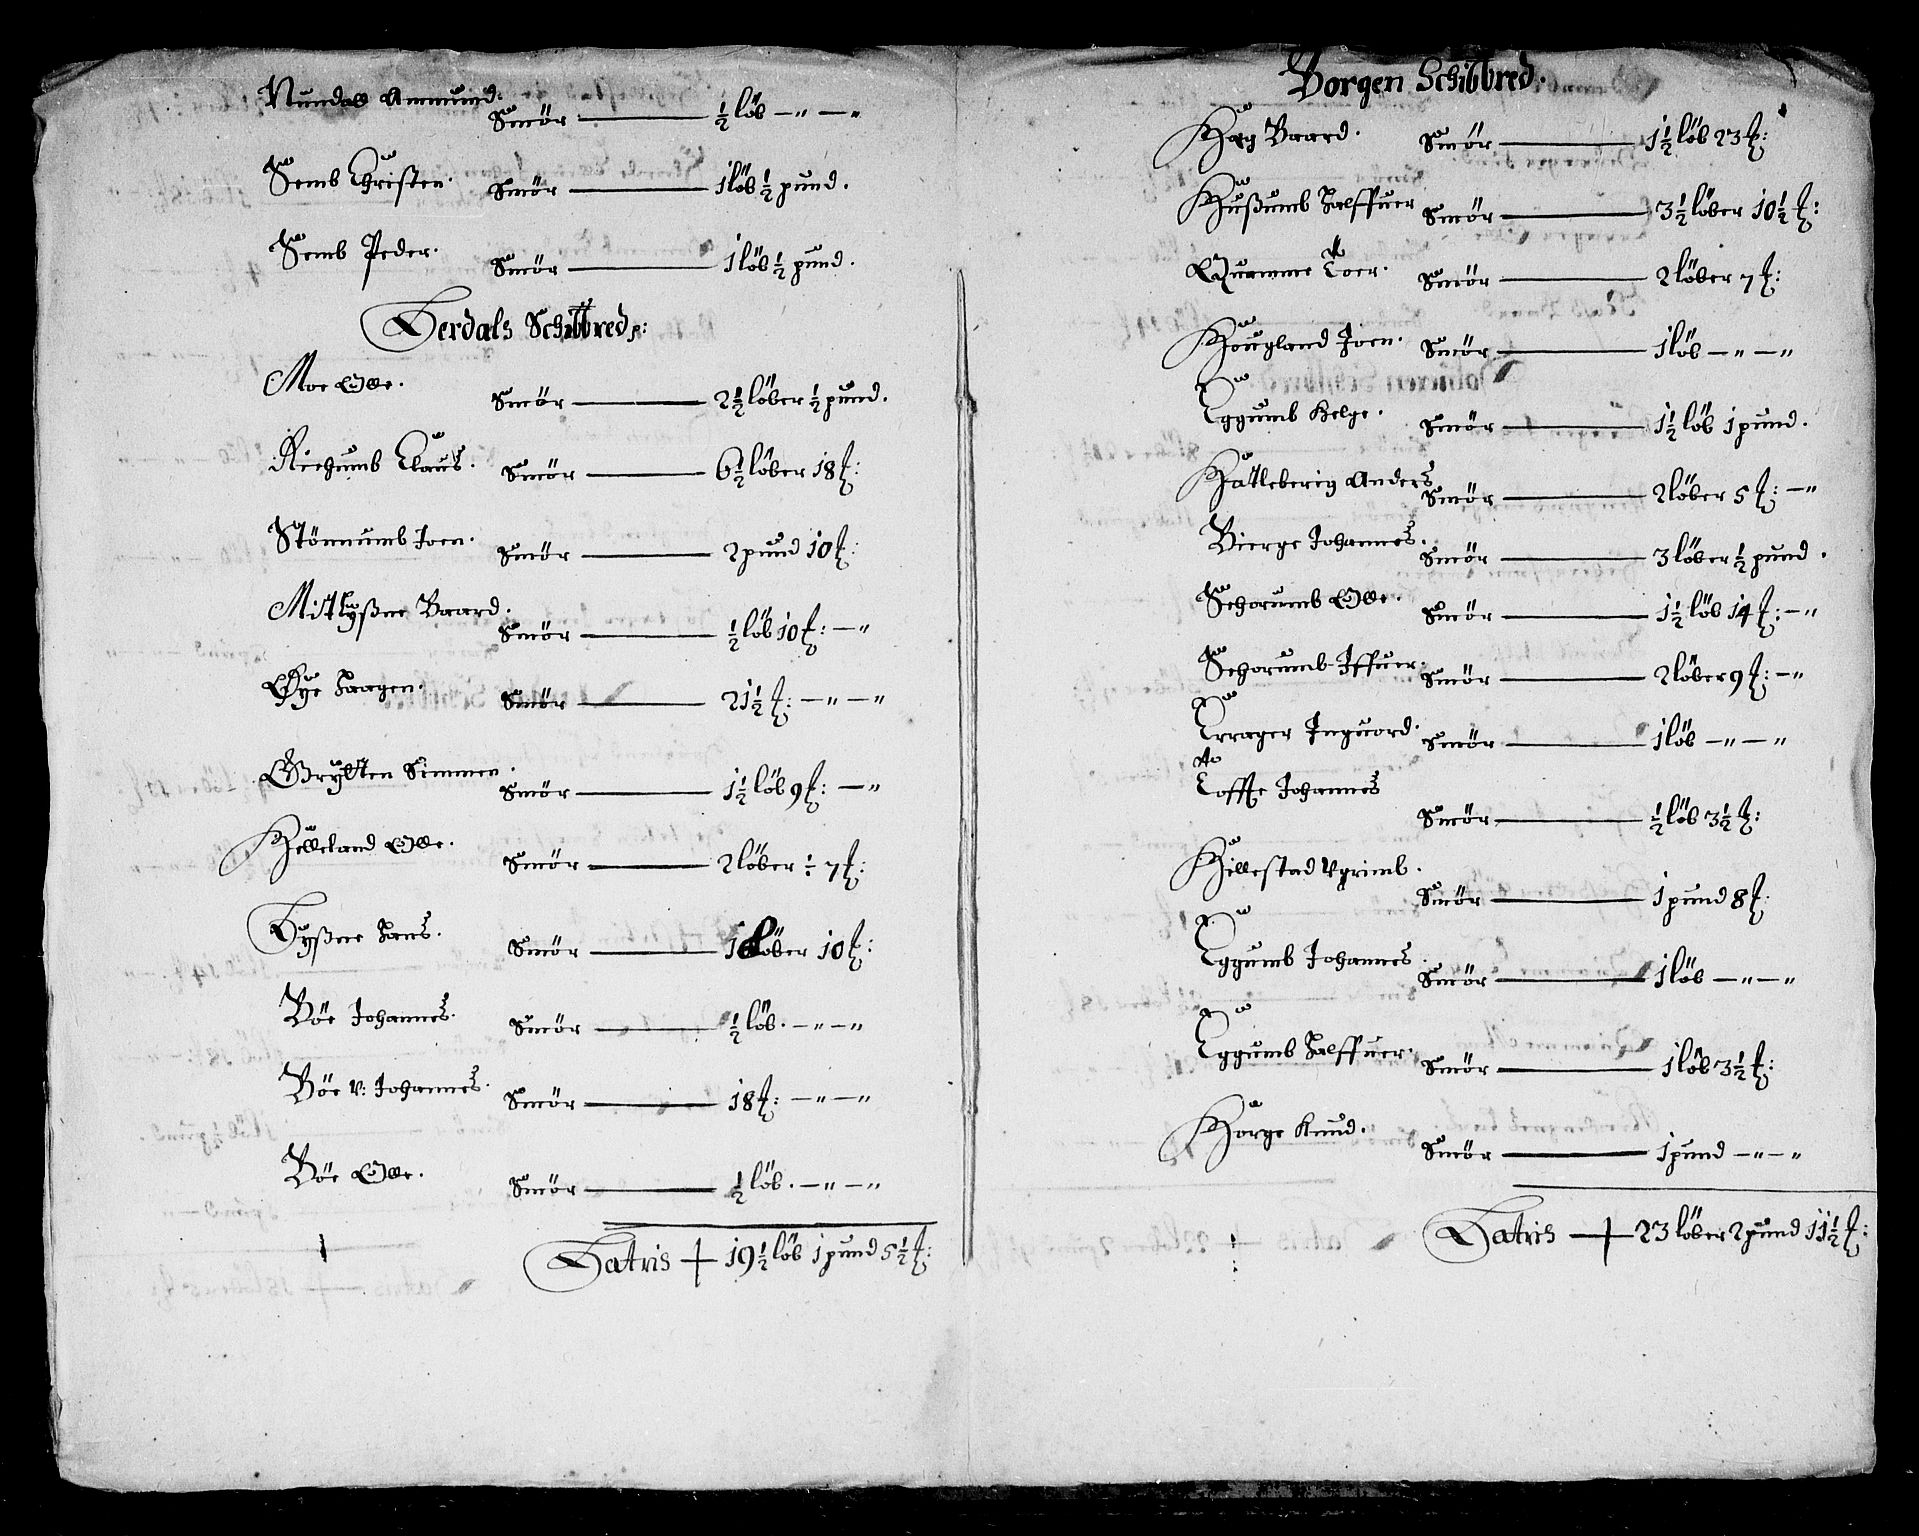 Nundal Ammund:
Smör — ½ löb — " — "
Semb Christen.
Smör — 1 löb ½ pund.
Semb Peder.
Smör — 1 löb ½ pund.
Lerdals Schibbred:
Moe Olle.
Smör — 2½ löber ½ pund.
Richumb Claus.
Smör — 6½ löber 18 ℔:
Stönnumb Joen.
Smör — 2 pund 10 ℔:
Mitlyßne Baard.
Smör — ½ löb 10 ℔: — "
Øye Haagen.
Smör — 21½ ℔: — " — "
Grytten Simmen.
Smör — 1½ löb 9 ℔: — "
Helleland Olle.
Smör — 2 löber ÷ 7 ℔:
Lyßne Hans.
Smör — 1 löber 10 ℔:
Böe Johannes.
Smör — ½ löb. — " — "
Böe v: Johannes.
Smör — 18 ℔: — " — "
Böe Olle.
Smör — ½ löb. — " — "
Latris + 19½ löb 1 pund 5½ ℔:
Borgen Schibbred.
Hag Baard.
Smör — 1½ löb 23 ℔:
Hußumb Halffuer
Smör — 3½ löber 10½ ℔:
Quamme Toer.
Smör — 2 löber 7 ℔:
Hougland Joen.
Smör — 1 löb — " — "
Eggumb Helge.
Smör — 1½ löb 1 pund.
Hatleberig Anders
Smör — 2 löber 5 ℔: — "
Bierge Johannes.
Smör — 3 löber ½ pund.
Schorumb Olle.
Smör — 1½ löb 14 ℔: — "
Schorumb Iffuer.
Smör — 2 löber 9 ℔: — "
Errager Inguord.
Smör — 1 löb — " — "
Toffte Johannes
Smör — ½ löb 3½ ℔:
Hillestad Ugrimb.
Smör — 1 pund 8 ℔:
Eggumb Johannes.
Smör — 1 löb — " — "
Eggumb Halffuer.
Smör — 1 löb 3½ ℔:
Horge Knud.
Smör — 1 pund — " — "
Latris + 23 löber 2 pund 11½ ℔: